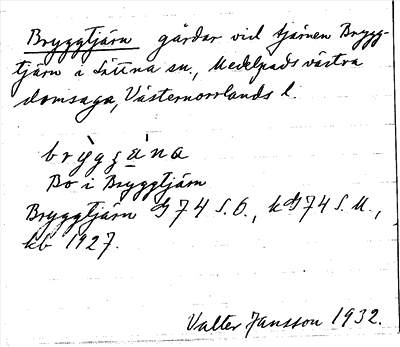 Bryggtjärn gårdar vid tjärnen Brygg-
tjärn i Sättna sn., Medelpads västra
domsaga, Västernorrlands l.
Bo i Bryggtjärn
Bryggtjärn G74 S.O., k G74 S.U.,
kb 1927.
Valter Jansson 1932.